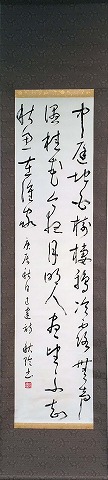 中庭地白樹棲鴉冷露無聲
濕桂花今夜月明人盡望不知
秋思在誰家 庚辰秋日王建詩